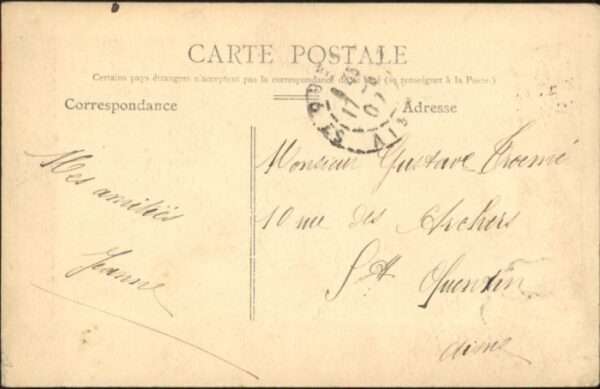 CARTE POSTALE
Certains pays étrangers n'acceptent pas la correspondance de ce côté (se renseigner à la Poste.)
Correspondance
Adresse
Mes amitiés
Jeanne
Monsieur Gustave
10 rue des Archers
St Quentin
Aisne